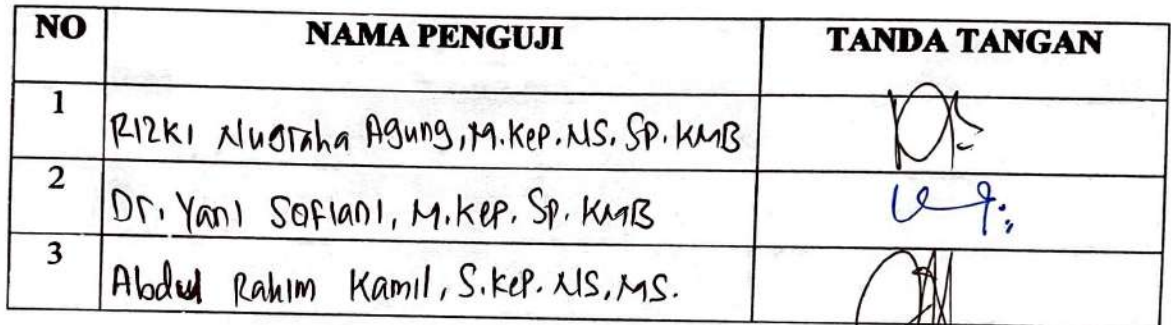 NO NAMA PENGUJI TANDA TANGAN
1 Rizki Nugraha Agung, M.Kep. NS. Sp. KMB
2 Dr. Yani Sofiani, M.Kep. Sp. KMB
3 Abdul Rahim Kamil, S.Kep. NS, MS.